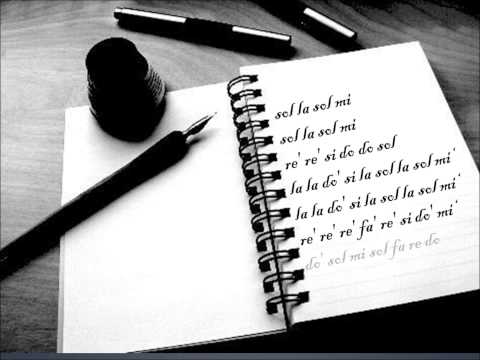 sol la sol mi
sol la sol mi
re' re' si do do sol
la la do' si la sol la sol mi'
la la do' si la sol la sol mi'
re' re' re' fa' re' si do' mi'
do' sol mi sol fa re do